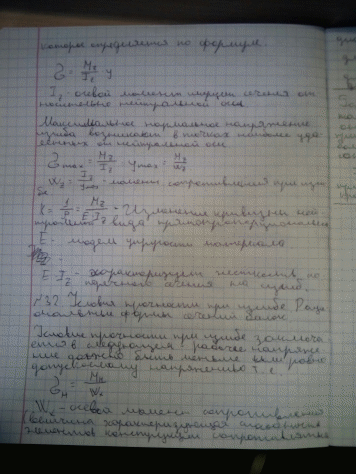 которые определяется по формуле
σ = Mz/Iz y
Iz - осевой момент инерции сечения от-
носительно нейтральной оси
Максимальное нормальное напряжение
изгиба возникают в точках наиболее уда-
ленных от нейтральной оси
σmax = Mz/Iz · ymax = Mz/Wz
Wz = Iz/ymax - момент сопротивления при изги-
бе
K = 1/ρ = Mz/E·Iz - кривизны
вида
E - модуль упругости материала
E·Iz - характеризует жесткость по-
перечного сечения на изгиб.
№32 Условия прочности при изгибе. Раци-
ональные формы сечений балок.
Условие прочности при изгибе заключа-
ется в следующем: рабочее напряже-
ние должно быть меньше или равно
допускаемому напряжению т. е.
σ
Wx - осевой момент сопротивления
(величина характеризующая способность
элементов конструкции сопротивляться